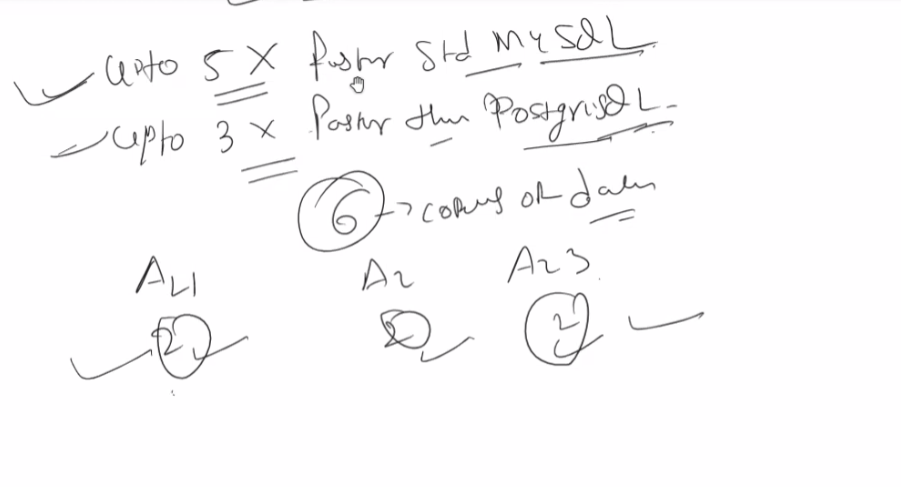 Upto 5 X Faster Std MySQL
Upto 3 X Faster than PostgreSQL
6 → copies of data
AZ1 AZ AZ3
2 2 2